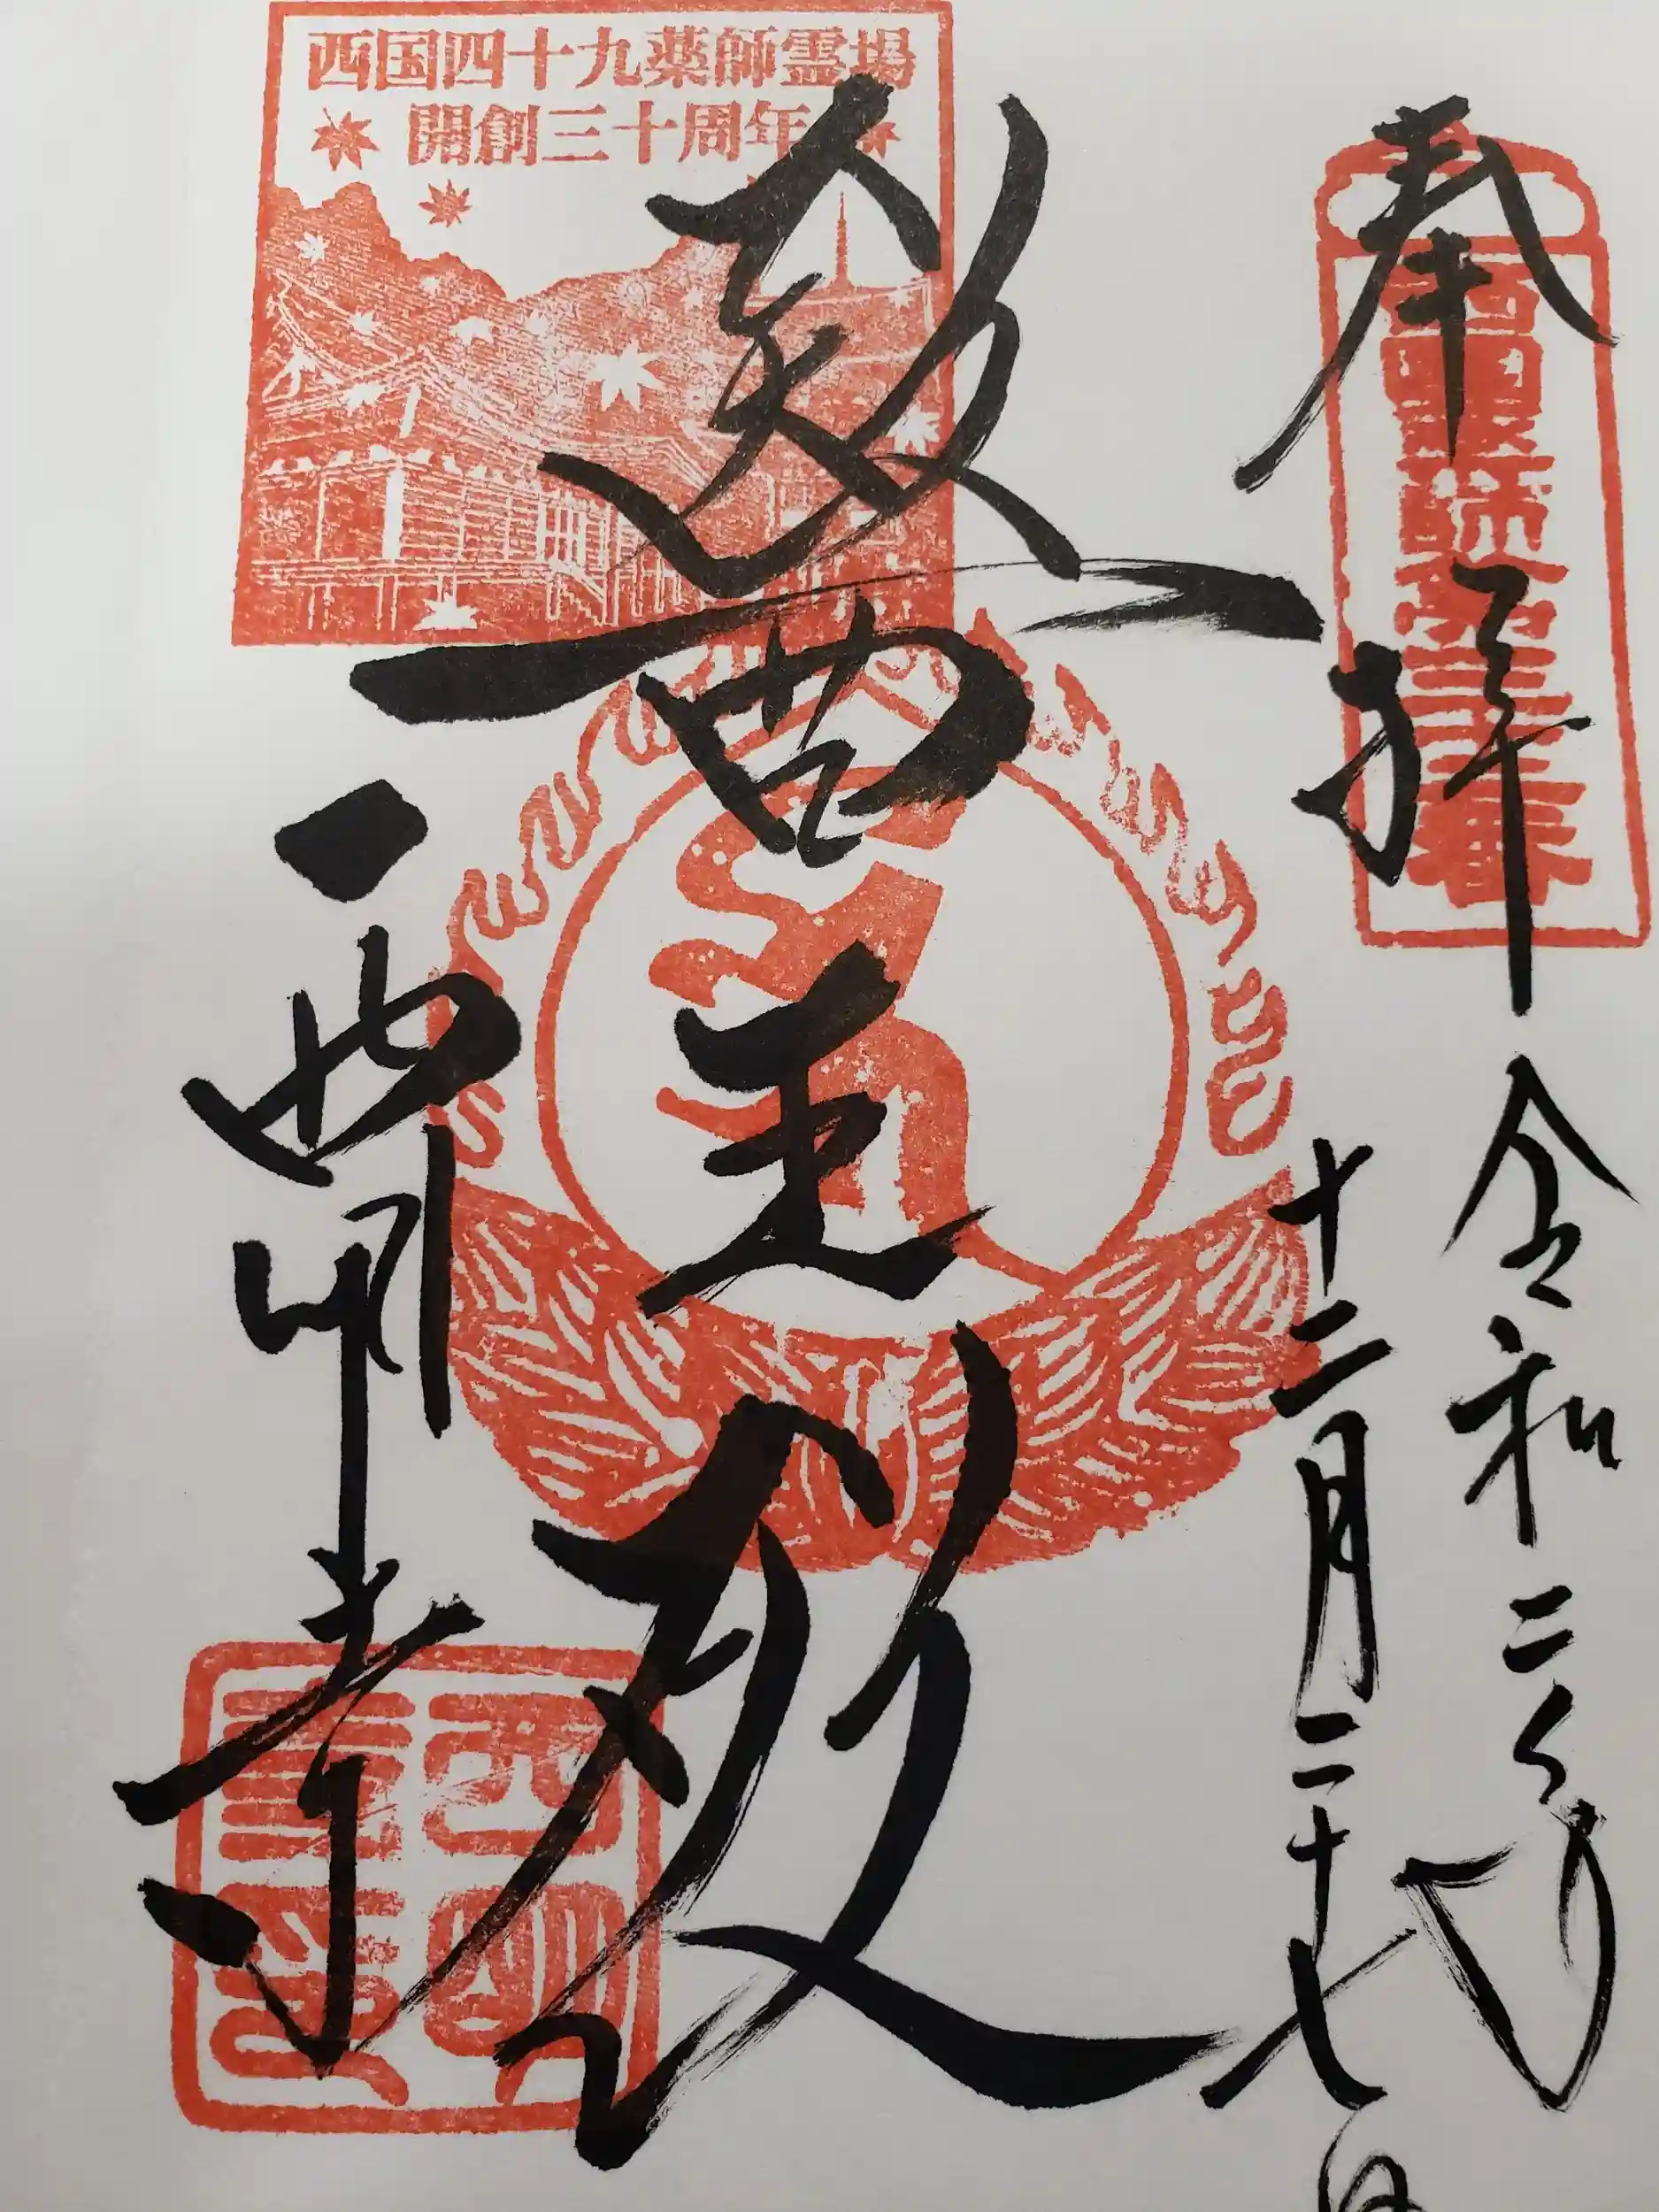 西国四十九薬師霊場
開創三十周年
奉拝
令和二年
十二月二十七日
醫王殿
西明寺